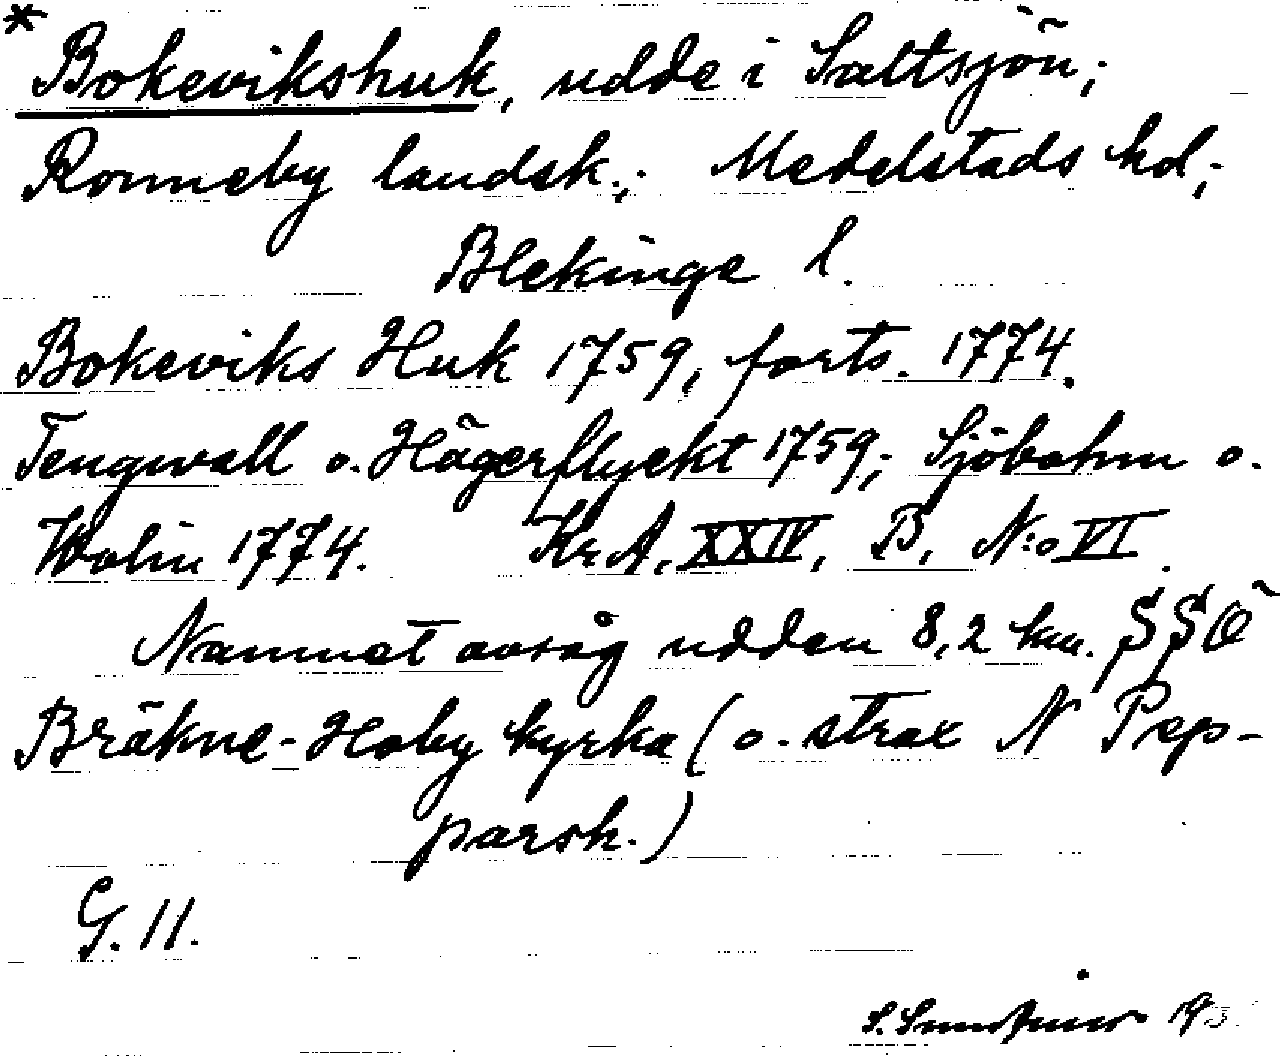 * Bokevikshuk, udde i Saltsjön;
Ronneby landsk.; Medelstads hd;
Blekinge l.
Bokeviks Huk 1759, forts. 1774.
Tengwall o. Hägerflyckt 1759; Sjöbohm o.
Wolin 1774. Kr. A. XXIV, B, N:o VI.
Namnet avsåg udden 8,2 km. SSÖ
Bräkne-Hoby kyrka (o. strax N Pep-
parsk.)
G. 11.
S.